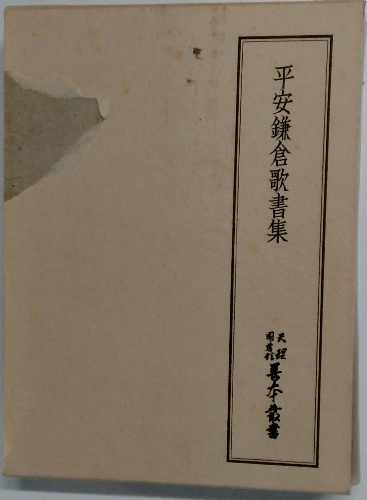 平安鎌倉歌書集
天理
図書館
善本叢書